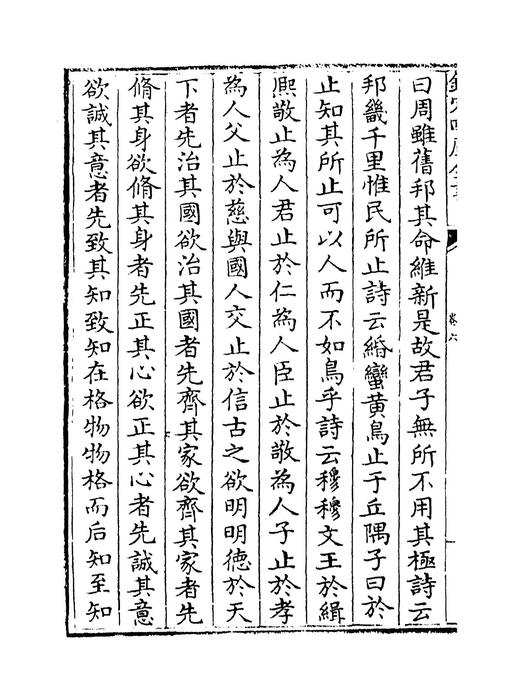 曰周雖舊邦其命維新是故君子無所不用其極詩云
邦畿千里惟民所止詩云緡蠻黃鳥止于丘隅子曰於
止知其所止可以人而不如鳥乎詩云穆穆文王於緝
熈敬止為人君止於仁為人臣止於敬為人子止於孝
為人父止於慈與國人交止於信古之欲明明德於天
下者先治其國欲治其國者先齊其家欲齊其家者先
脩其身欲脩其身者先正其心欲正其心者先誠其意
欲誠其意者先致其知致知在格物物格而后知至知